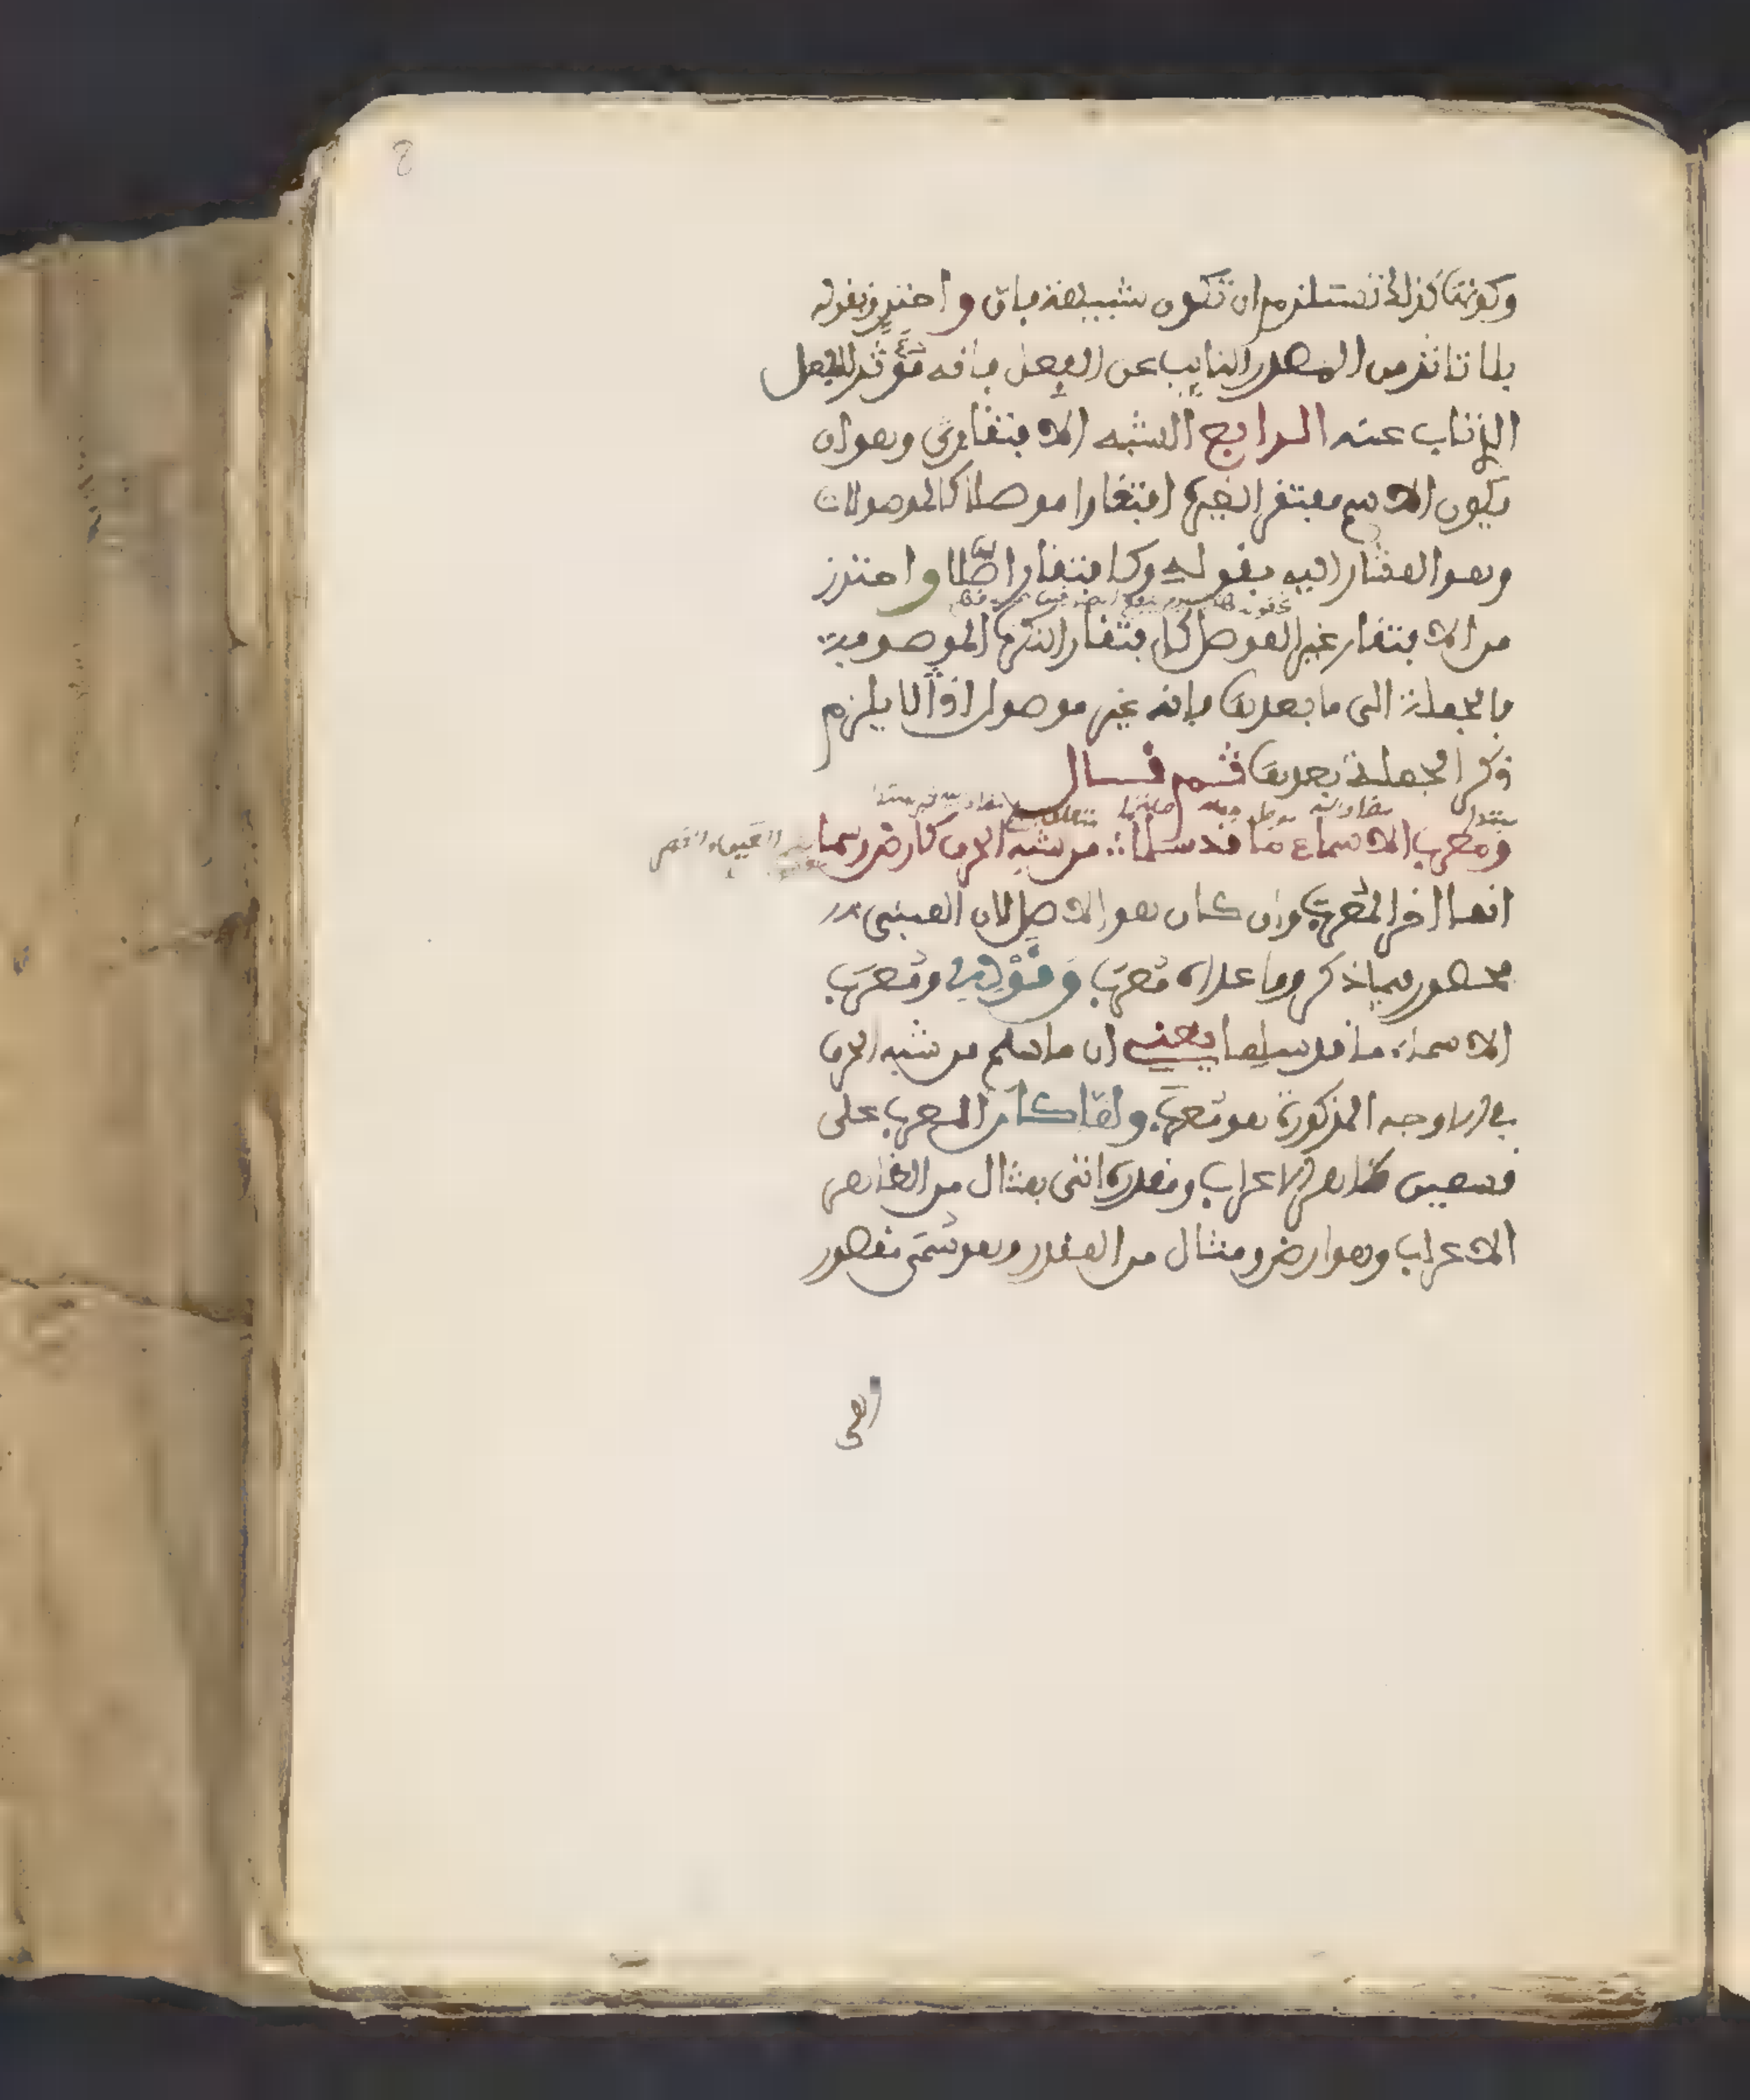 وكونها كذلك تستلزم ان تكون شبيهة بان واحترز بقوله
بلا تاثر من المصدر النايب عن الفعل فانه مُؤثَّر للفعل
الذي ناب عنه الرابع الشبه الافتقاري وهو ان
يكون الاسم مفتقرا لغيره افتقارا موصلا كالموصولات
وهو المشار اليه بقوله وكافتقار اصّلا واحترز
من الافتقار غير الموصل كافتقار النكرة الموصوفة
بالجملة الى ما بعدها فانه غير موصول اذ لا يلزم
ذكر الجملة بعدها ثم قال
ومعرب الاسماء ما قد سلما ∴ من شبه الحرف كارض وسما
انما اخر المُعرب وان كان هو الاصل لان المبنى
محصور فيما ذكر وما عداه مُعرَب وَقَوْلِهِ ومُعرَب
الاسماء ما قد سلما يعني ان ما سلم من شبه الحرف
في الاوجه المذكورة هو مُعرَب ولما كان المعرب على
قسمين ظاهر الاعراب ومقدره اتى بمثال من الظاهر
الاعراب وهو ارض ومثال من المقدر وهو سُمَى مقصور